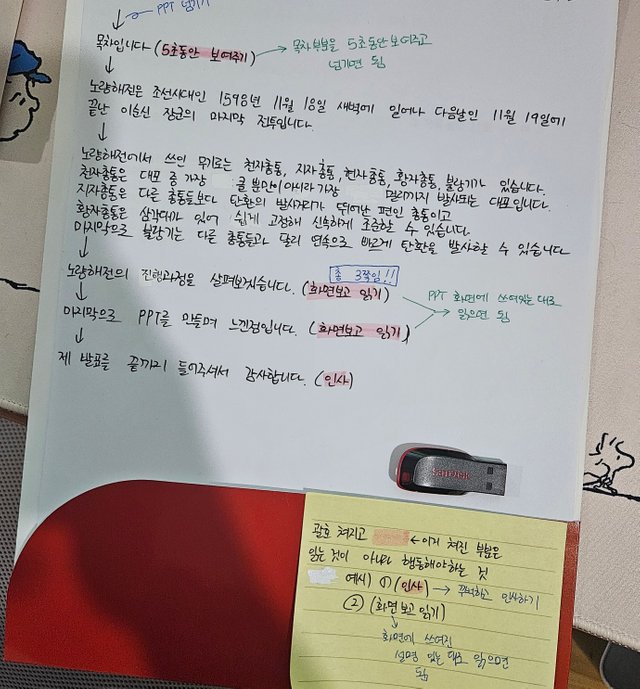 PPT 넘기기
목차입니다 (5초동안 보여주기)
목차부분을 5초동안 보여주고
넘기면 됨
노량해전은 조선시대인 1598년 11월 18일 새벽에 일어나 다음날인 11월 19일에
끝난 이순신 장군의 마지막 전투입니다.
노량해전에서 쓰인 무기로는 천자총통, 지자총통, 현자총통, 황자총통, 불랑기가 있습니다.
천자총통은 대포 중 가장 클 뿐만이 아니라 가장 멀리까지 발사되는 대포입니다.
지자총통은 다른 총통들보다 탄환의 발사거리가 뛰어난 편인 총통이고
황자총통은 삼각대가 있어 쉽게 고정해 신속하게 조준할 수 있습니다.
마지막으로 불랑기는 다른 총통들과 달리 연속으로 빠르게 탄환을 발사할 수 있습니다
총 3쪽임!!
노량해전의 진행과정을 살펴보겠습니다. (화면보고 읽기)
PPT 화면에 쓰여있는 대로
읽으면 됨
마지막으로 PPT를 만들며 느낀점입니다. (화면보고 읽기)
제 발표를 끝까지 들어주셔서 감사합니다. (인사)
SanDisk
괄호 쳐지고 ←이게 쳐진 부분은
읽는 것이 아니라 행동해야하는 것
예시) ① (인사) → 꾸벅하고 인사하기
② (화면보고 읽기)
화면에 쓰여진
설명 있는 대로 읽으면
됨